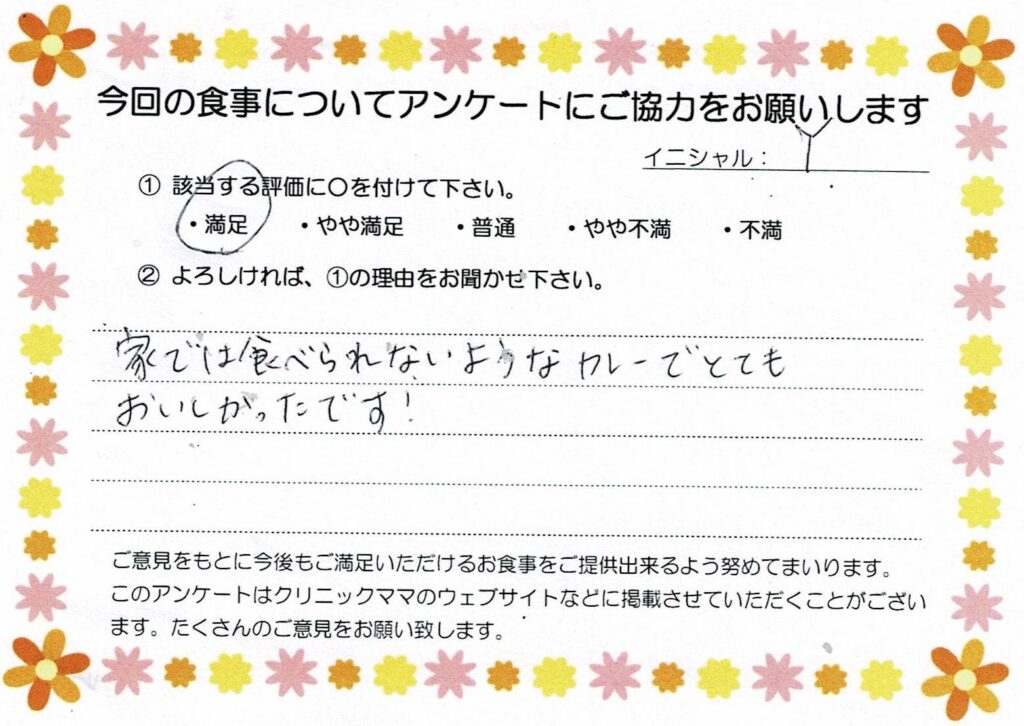 今回の食事についてアンケートにご協力をお願いします
イニシャル: Y
① 該当する評価に○を付けて下さい。
・満足 ・やや満足 ・普通 ・やや不満 ・不満
② よろしければ、①の理由をお聞かせ下さい。
家では食べられないようなカレーでとても
おいしかったです!
ご意見をもとに今後もご満足いただけるお食事をご提供出来るよう努めてまいります。
このアンケートはクリニックママのウェブサイトなどに掲載させていただくことがござい
ます。たくさんのご意見をお願い致します。